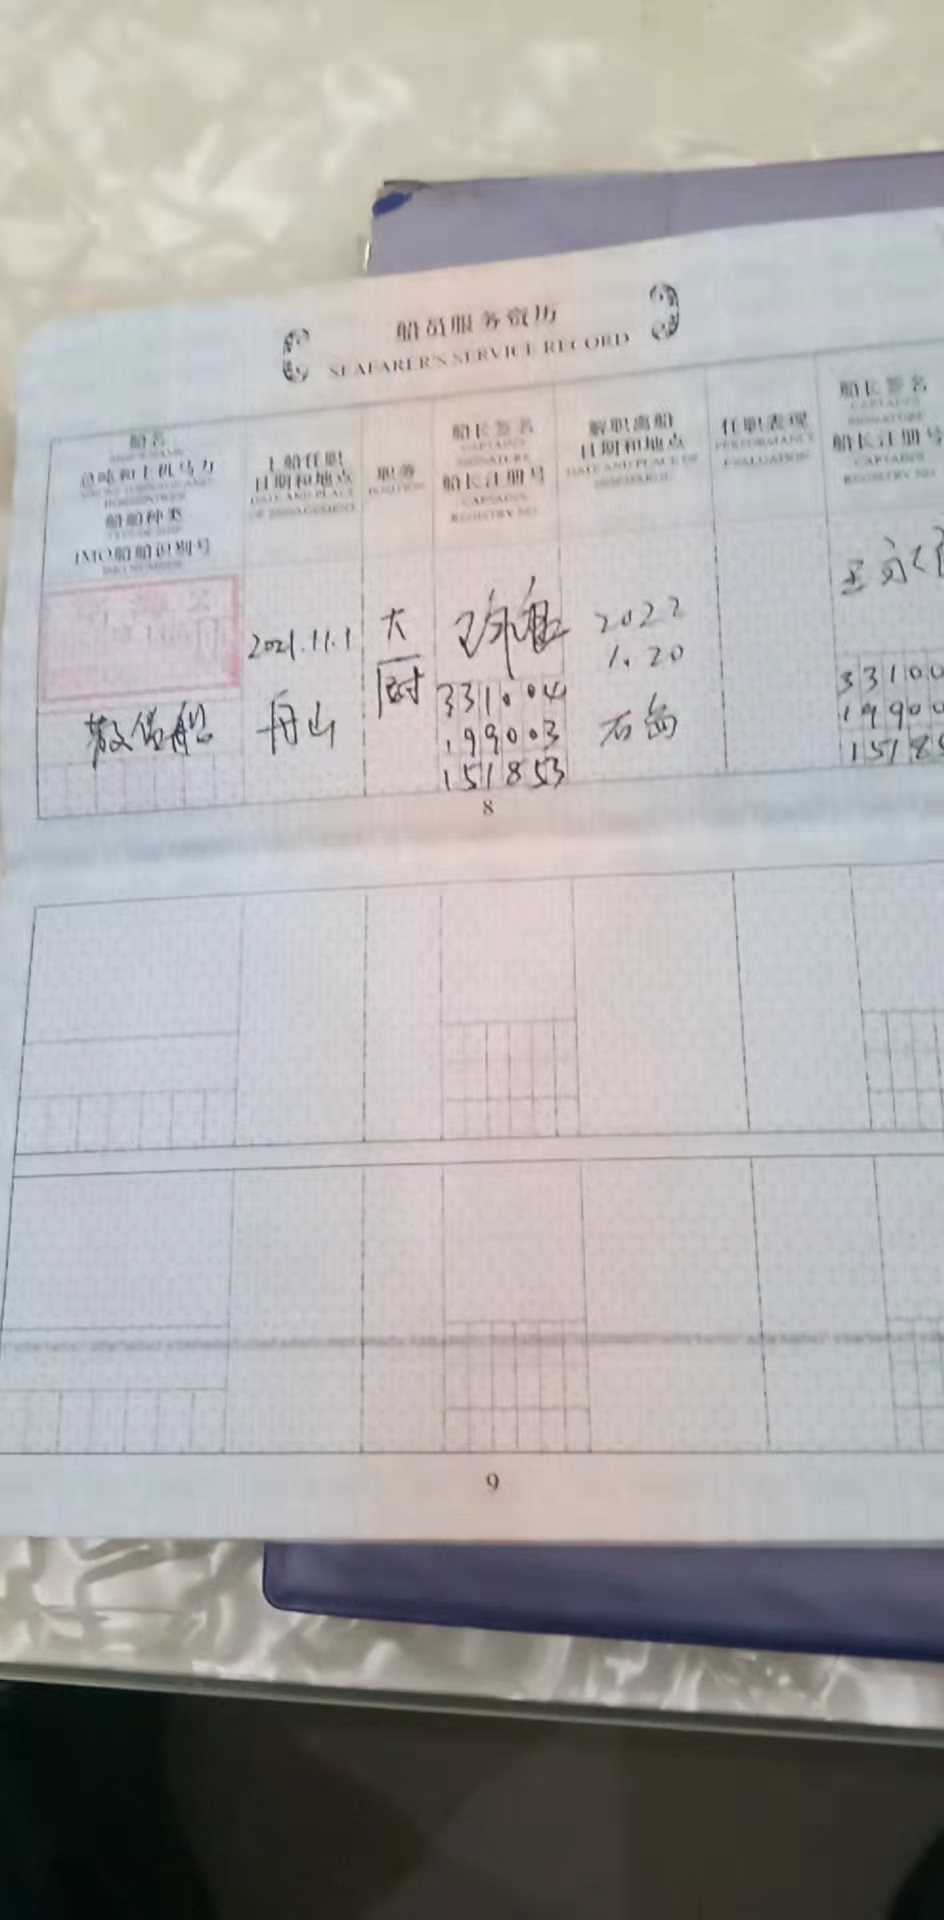 船员服务资历
SEAFARER'S SERVICE RECORD
船名
总吨和主机马力
船舶种类
IMO船舶识别号
IMO NUMBER
上船任职
日期和地点
DATE AND PLACE
OF ENGAGEMENT
职务
POSITION
船长签名
CAPTAIN'S
SIGNATURE
船长注册号
CAPTAIN'S
REGISTRY NO.
解职离船
日期和地点
DATE AND PLACE OF
DISCHARGE
任职表现
PERFORMANCE
EVALUATION
船长签名
CAPTAIN'S
SIGNATURE
船长注册号
CAPTAIN'S
REGISTRY NO.
散货船
2021.11.1
舟山
大
厨
331004
199003
151853
2022
1.20
石岛
3310
1990
1518
8
9